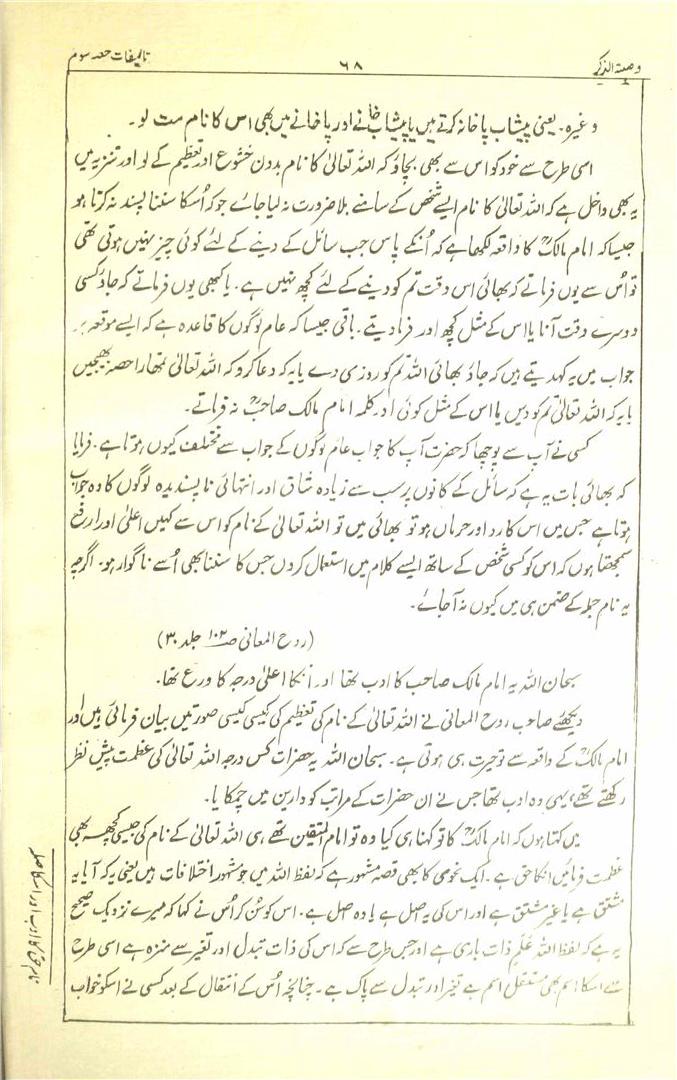 وصیۃ الذکر
۶۸
تالیفات حصہ سوم
وغیرہ۔ یعنی پیشاب پاخانہ کرتے ہیں یا پیشاب خانے اور پاخانے میں بھی اس کا نام مت لو۔
اسی طرح سے خود کو اس سے بھی بچاؤ کہ اللہ تعالیٰ کا نام بدون خشوع اور تعظیم کے لو اور تنزیہ میں
یہ بھی داخل ہے کہ اللہ تعالیٰ کا نام ایسے شخص کے سامنے بلا ضرورت نہ لیا جائے جو کہ اُسکا سننا پسند نہ کرتا ہو
جیسا کہ امام مالکؒ کا واقعہ لکھا ہے کہ اُنکے پاس جب سائل کے دینے کے لئے کوئی چیز نہیں ہوتی تھی
تو اُس سے یوں فرماتے کہ بھائی اس وقت تم کو دینے کے لئے کچھ نہیں ہے۔ یا کبھی یوں فرماتے کہ جاؤ کسی
دوسرے وقت آنا یا اس کے مثل کچھ اور فرما دیتے۔ باقی جیسا کہ عام لوگوں کا قاعدہ ہے کہ ایسے موقعہ پر
جواب میں یہ کہدیتے ہیں کہ جاؤ بھائی اللہ تم کو روزی دے یا یہ کہ دعا کرو کہ اللہ تعالیٰ تمھارا حصہ بھیجیں
یا یہ کہ اللہ تعالیٰ تم کو دیں یا اس کے مثل کوئی اور کلمہ امام مالک صاحبؒ نہ فرماتے۔
کسی نے آپ سے پوچھا کہ حضرت آپ کا جواب عام لوگوں کے جواب سے مختلف کیوں ہوتا ہے۔ فرمایا
کہ بھائی بات یہ ہے کہ سائل کے کانوں پر سب سے زیادہ شاق اور انتہائی ناپسندیدہ لوگوں کا وہ جواب
ہوتا ہے جس میں اس کا رد اور حرماں ہو تو بھائی میں تو اللہ تعالیٰ کے نام کو اس سے کہیں اعلیٰ اور ارفع
سمجھتا ہوں کہ اس کو کسی شخص کے ساتھ ایسے کلام میں استعمال کردں جس کا سننا بھی اُسے ناگوار ہو۔ اگرچہ
یہ نام جملہ کے ضمن ہی میں کیوں نہ آجائے۔
(روح المعانی صـ۱۰۲ جلد ۳۰)
سبحان اللہ یہ امام مالک صاحب کا ادب تھا اور انکا اعلیٰ درجہ کا ورع تھا۔
دیکھئے صاحب روح المعانی نے اللہ تعالیٰ کے نام کی تعظیم کی کیسی کیسی صورتیں بیان فرمائی ہیں اور
امام مالکؒ کے واقعہ سے تو حیرت ہی ہوتی ہے۔ سبحان اللہ یہ حضرات کس درجہ اللہ تعالیٰ کی عظمت پیش نظر
رکھتے تھے یہی وہ ادب تھا جس نے ان حضرات کے مراتب کو دارین میں چمکایا۔
میں کہتا ہوں کہ امام مالکؒ کا تو کہنا ہی کیا وہ تو امام المتقین تھے ہی اللہ تعالیٰ کے نام کی جیسی کچھ بھی
عظمت فرمائیں انکا حق ہے۔ ایک نحوی کا بھی قصہ مشہور ہے کہ لفظ اللہ میں جو مشہور اختلافات ہیں یعنی یہ کہ آیا یہ
مشتق ہے یا غیر مشتق ہے اور اس کی یہ اصل ہے یا وہ اصل ہے۔ اس کو سُن کر اُس نے کہا کہ میرے نزدیک صحیح
یہ ہے کہ لفظ اللہ عَلَمِ ذات باری ہے اور جس طرح سے کہ اس کی ذات تبدل اور تغیر سے منزہ ہے اسی طرح
سے اسکا اسم بھی مستقل اسم ہے تغیر اور تبدل سے پاک ہے۔ چنانچہ اُس کے انتقال کے بعد کسی نے اسکو خواب
نام حق کا ادب اور اسکا صلہ